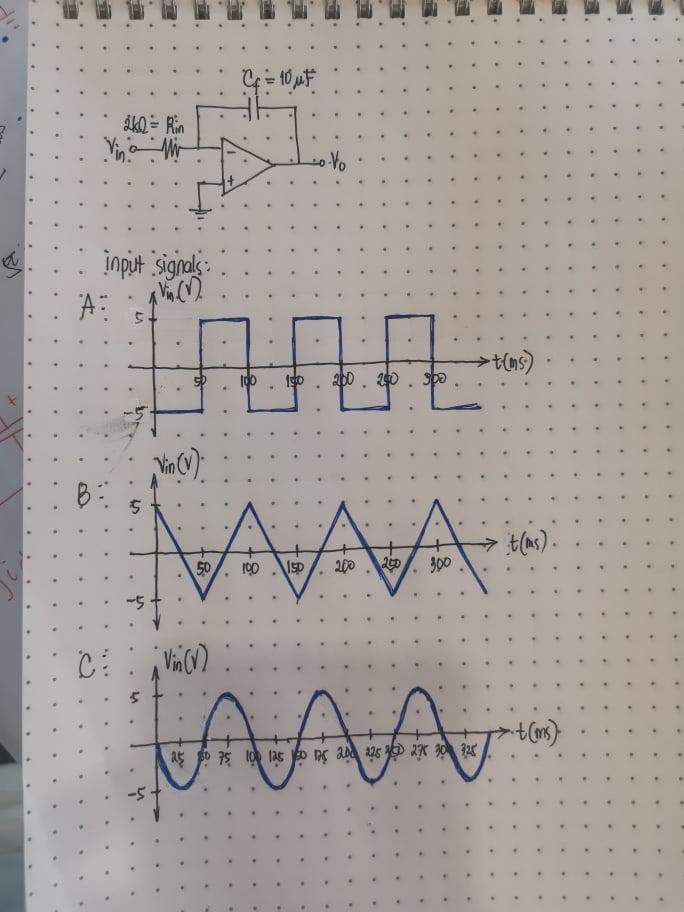 Cf = 10 μF
2kΩ = Rin
Vin
-
+
Vo
input signals:
A:
Vin (V)
5
-5
50 100 150 200 250 300
t(ms)
B:
Vin (V)
5
-5
50 100 150 200 250 300
t(ms)
C:
Vin (V)
5
-5
25 50 75 100 125 150 175 200 225 250 275 300 325
t(ms)